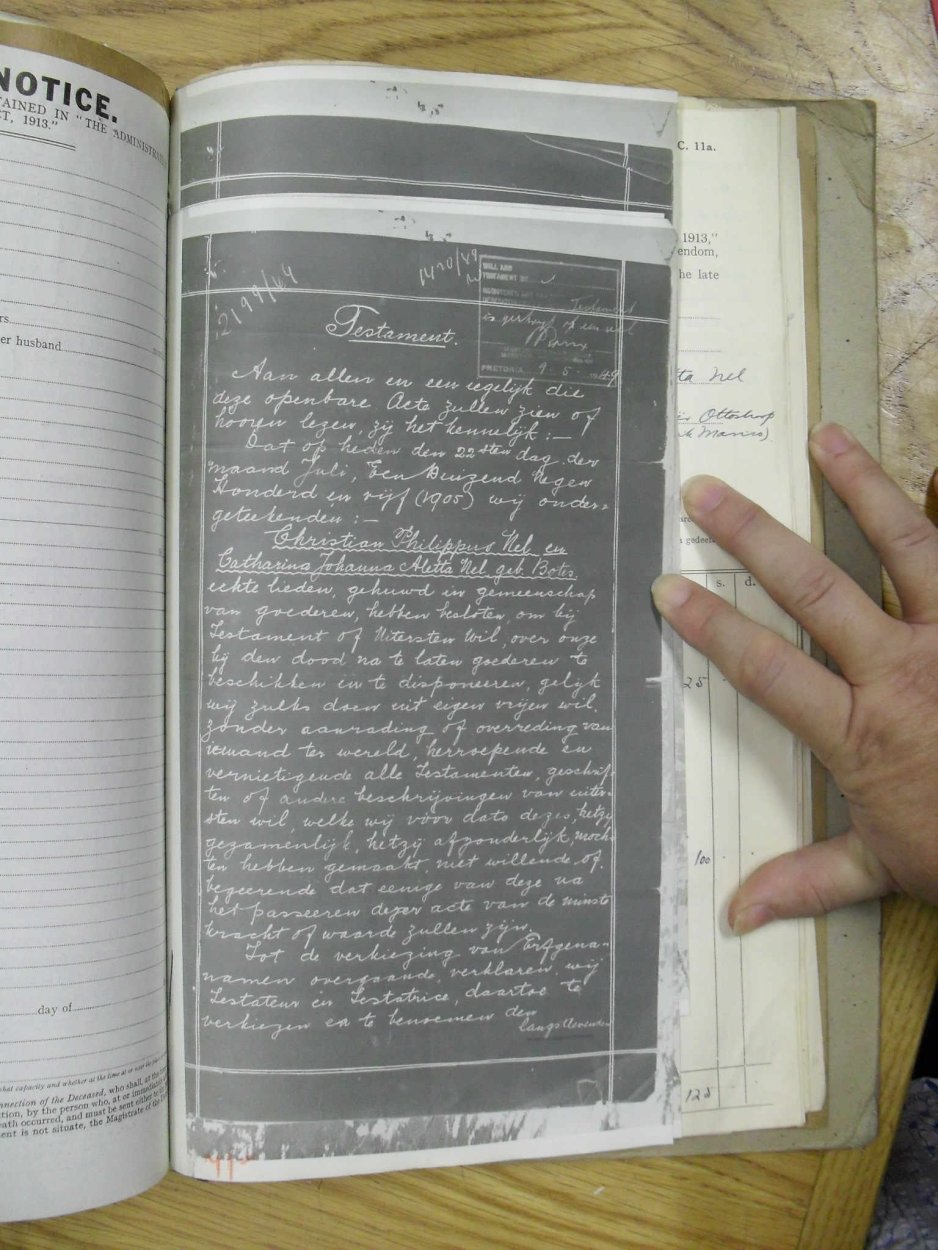 NOTICE.
TAINED IN "THE ADMINISTRA
CT, 1913."
rs
er husband
day of
that capacity and whether at the time at or near the
nnection of the Deceased, who shall, at the
tion, by the person who, at or immediately
eath occurred, and must be sent either to the
ent is not situate, the Magistrate of the
2199/64
1420/49
WILL AND
TESTAMENT
Testament
is geregistr op een vel
PRETORIA 9-5-1949
Testament.
Aan allen en een iegelijk die
deze openbare Acte zullen zien of
hooren lezen, zij het kennelijk :—
Dat op heden den 22sten dag der
maand Juli, Een Duizend Negen
Honderd en vijf (1905) wij onder=
geteekenden :—
Christian Philippus Nel en
Catharina Johanna Aletta Nel geb. Botes
echte lieden, gehuwd in gemeenschap
van goederen, hebben besloten, om bij
Testament of Uitersten Wil, over onze
bij den dood na te laten goederen te
beschikken en te disponeeren, gelijk
wij zulks doen uit eigen vrijen wil,
zonder aanrading of overreding van
iemand ter wereld, herroepende en
vernietigende alle Testamenten, geschrif-
ten of andere beschrijvingen van uiter-
sten wil, welke wij vóór dato dezes, hetzij
gezamenlijk, hetzij afzonderlijk, moch-
ten hebben gemaakt, niet willende of
begeerende dat eenige van deze na
het passeeren dezer acte van de minste
kracht of waarde zullen zijn.
Tot de verkiezing van Erfgena-
namen overgaande, verklaren wij
Testateur en Testatrice, daartoe te
verkiezen en te benoemen den
langstlevenden
C. 11a.
1913,"
endom,
he late
tta Nel
Ottoshoop
Marico)
n gedeel
s. d.
25
100
125